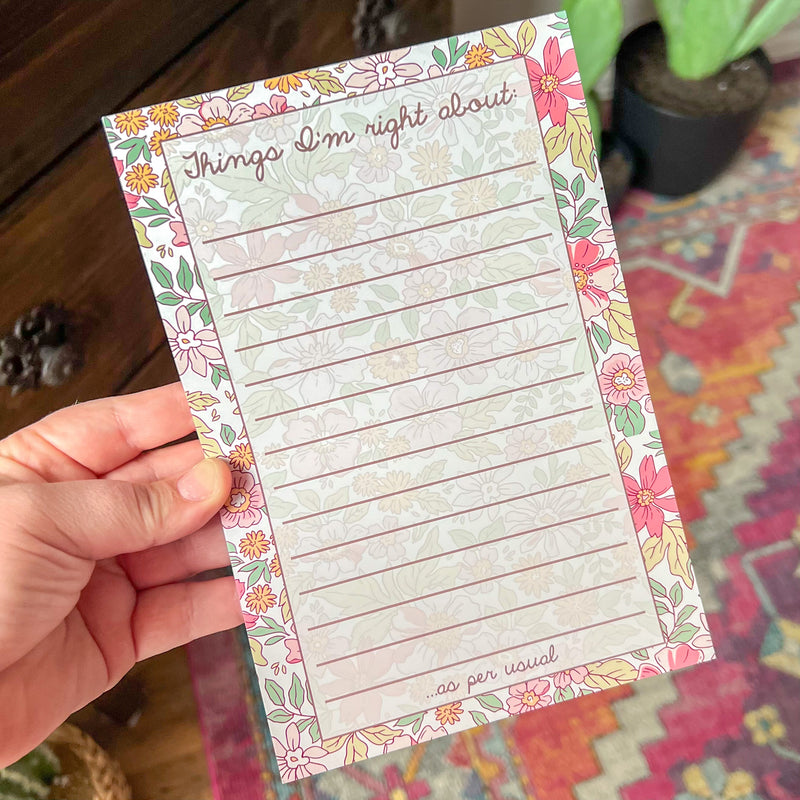 Things I'm right about:
...as per usual